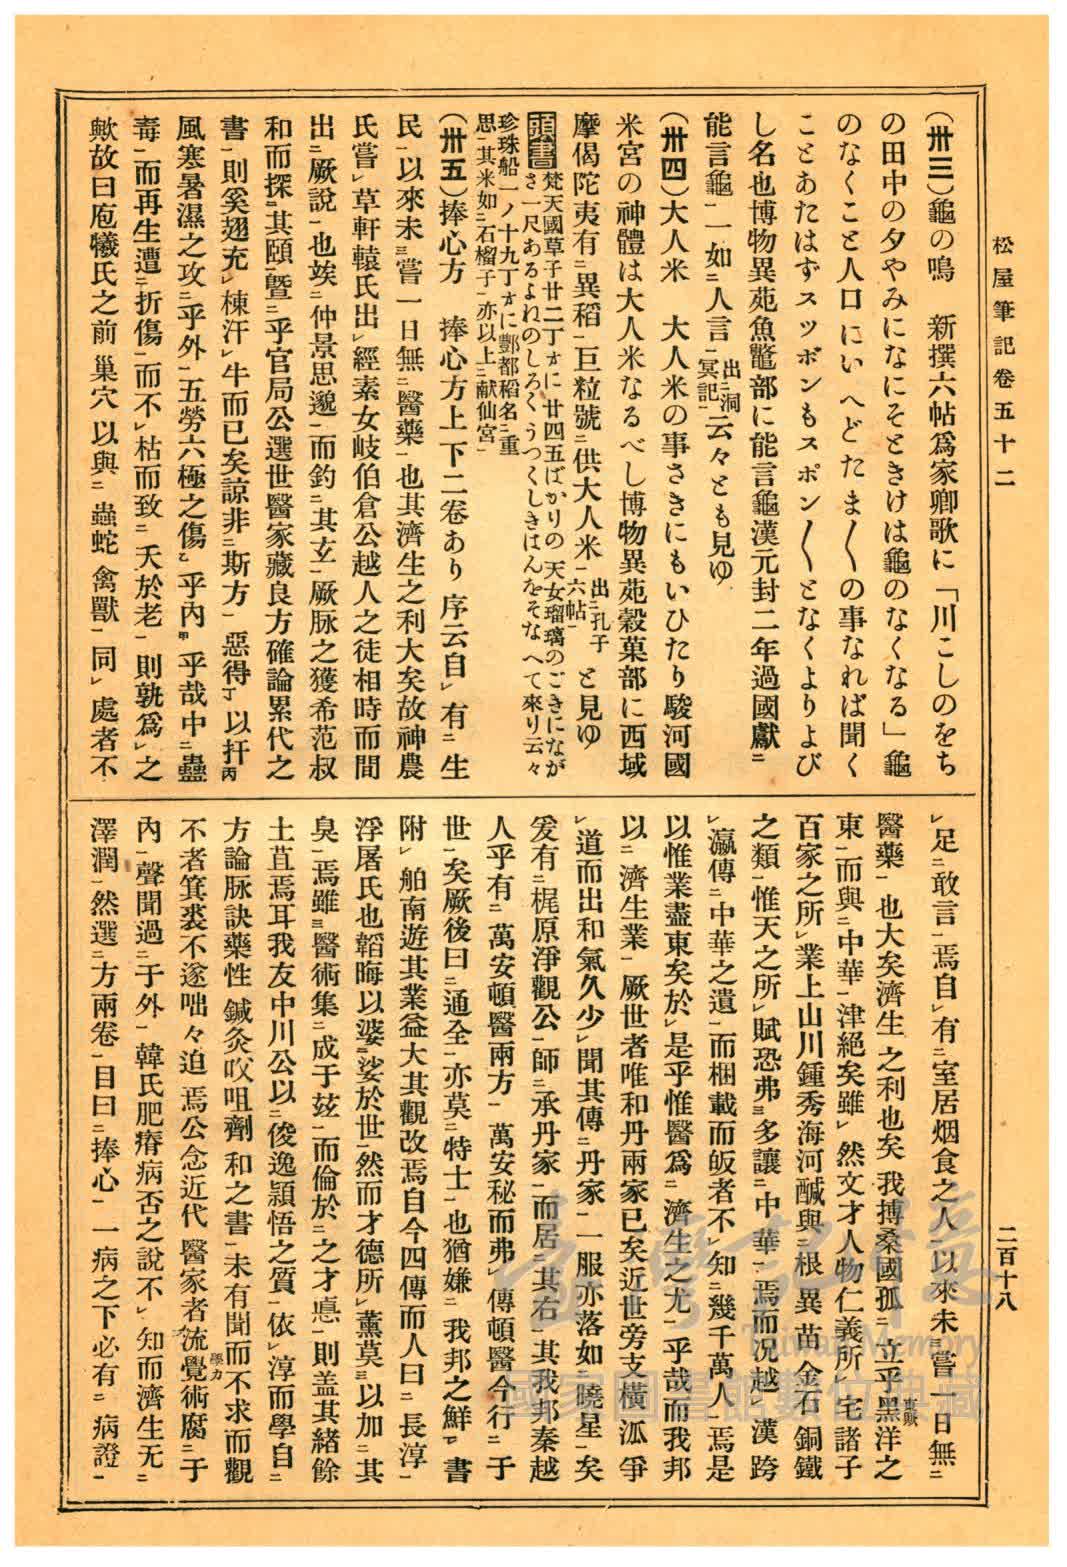 松屋筆記卷五十二
二百十八
(卅三)龜の鳴　新撰六帖爲家卿歌に「川こしのをち
の田中の夕やみになにそときけは龜のなくなる」龜
のなくこと人口にいへどたま〱の事なれば聞く
ことあたはずスツボンもスポン〱となくよりよび
し名也博物異苑魚鼈部に能言龜漢元封二年過國獻ニ
能言龜一一如ニ人言一出ニ洞冥記一云々とも見ゆ
(卅四)大人米　大人米の事さきにもいひたり駿河國
米宮の神體は大人米なるべし博物異苑穀菓部に西域
摩偈陀夷有ニ異稻一巨粒號ニ供大人米一出ニ孔子六帖一と見ゆ
頭書梵天國草子廿二丁ォに廿四五ばかりの天女瑠璃のごきになが
さ一尺あるよねのしろくうつくしきはんをそなへて來り云々
珍珠船一ノ十九丁ォに酆都稻名ニ重
思一其米如ニ石榴子一亦以上ニ献仙宮一
(卅五)捧心方　捧心方上下二卷あり序云自レ有ニ生
民一以來未三嘗一日無ニ醫藥一也其濟生之利大矣故神農
氏嘗レ草軒轅氏出レ經素女岐伯倉公越人之徒相時而間
出ニ厥說一也竢ニ仲景思邈一而釣ニ其玄一厥脉之獲希范叔
和而探ニ其頤一曁ニ乎官局公選世醫家藏良方確論累代之
書一則奚翅充レ棟汗レ牛而已矣諒非ニ斯方一惡得丁以扞丙
風寒暑濕之攻ニ乎外一五勞六極之傷乙乎內甲乎哉中ニ蠱
毒一而再生遭ニ折傷一而不レ枯而致ニ夭於老一則孰爲レ之
歟故曰庖犧氏之前巢穴以與ニ蟲蛇禽獸一同レ處者不
レ足ニ敢言一焉自レ有ニ室居烟食之人一以來未三嘗一日無ニ
醫藥一也大矣濟生之利也矣我搏桑國孤ニ立乎黑洋之
東一而與ニ中華一津絕矣雖レ然文才人物仁義所レ宅諸子
百家之所レ業上山川鍾秀海河醎與ニ根異苗一金石銅鐵
之類一惟天之所レ賦恐弗三多讓ニ中華一焉而況越レ漢跨
レ瀛傳ニ中華之遺一而梱載而皈者不レ知ニ幾千萬人一焉是
以惟業盡東矣於レ是乎惟醫爲ニ濟生之尤一乎哉而我邦
以ニ濟生業一厥世者唯和丹兩家已矣近世旁支橫泒爭
レ道而出和氣久少レ聞其傳ニ丹家一一服亦落如ニ曉星一矣
爰有ニ梶原淨觀公一師ニ承丹家一而居ニ其右一其我邦秦越
人乎有ニ萬安頓醫兩方一萬安秘而弗レ傳頓醫今行ニ于
世一矣厥後曰ニ通全一亦莫ニ特士一也猶嫌ニ我邦之鮮下書
附レ舶南遊其業益大其觀改焉自今四傳而人曰ニ長淳一
浮屠氏也韜晦以婆ニ娑於世一然而才德所レ薰莫三以加ニ其
臭一焉雖三醫術集ニ成于玆一而倫於ニ之才悳一則盖其緒餘
土苴焉耳我友中川公以ニ俊逸頴悟之質一依レ淳而學自ニ
方論脉訣藥性鍼灸㕮咀劑和之書一未有聞而不求而觀
不者箕裘不遂咄々迫焉公念近代醫家者流覺術腐ニ于
內一聲聞過ニ于外一韓氏肥瘠病否之說不レ知而濟生无ニ
澤潤一然選ニ方兩卷一目曰ニ捧心一一病之下必有ニ病證一
臺灣記憶
Taiwan Memory
國家圖書館數位典藏